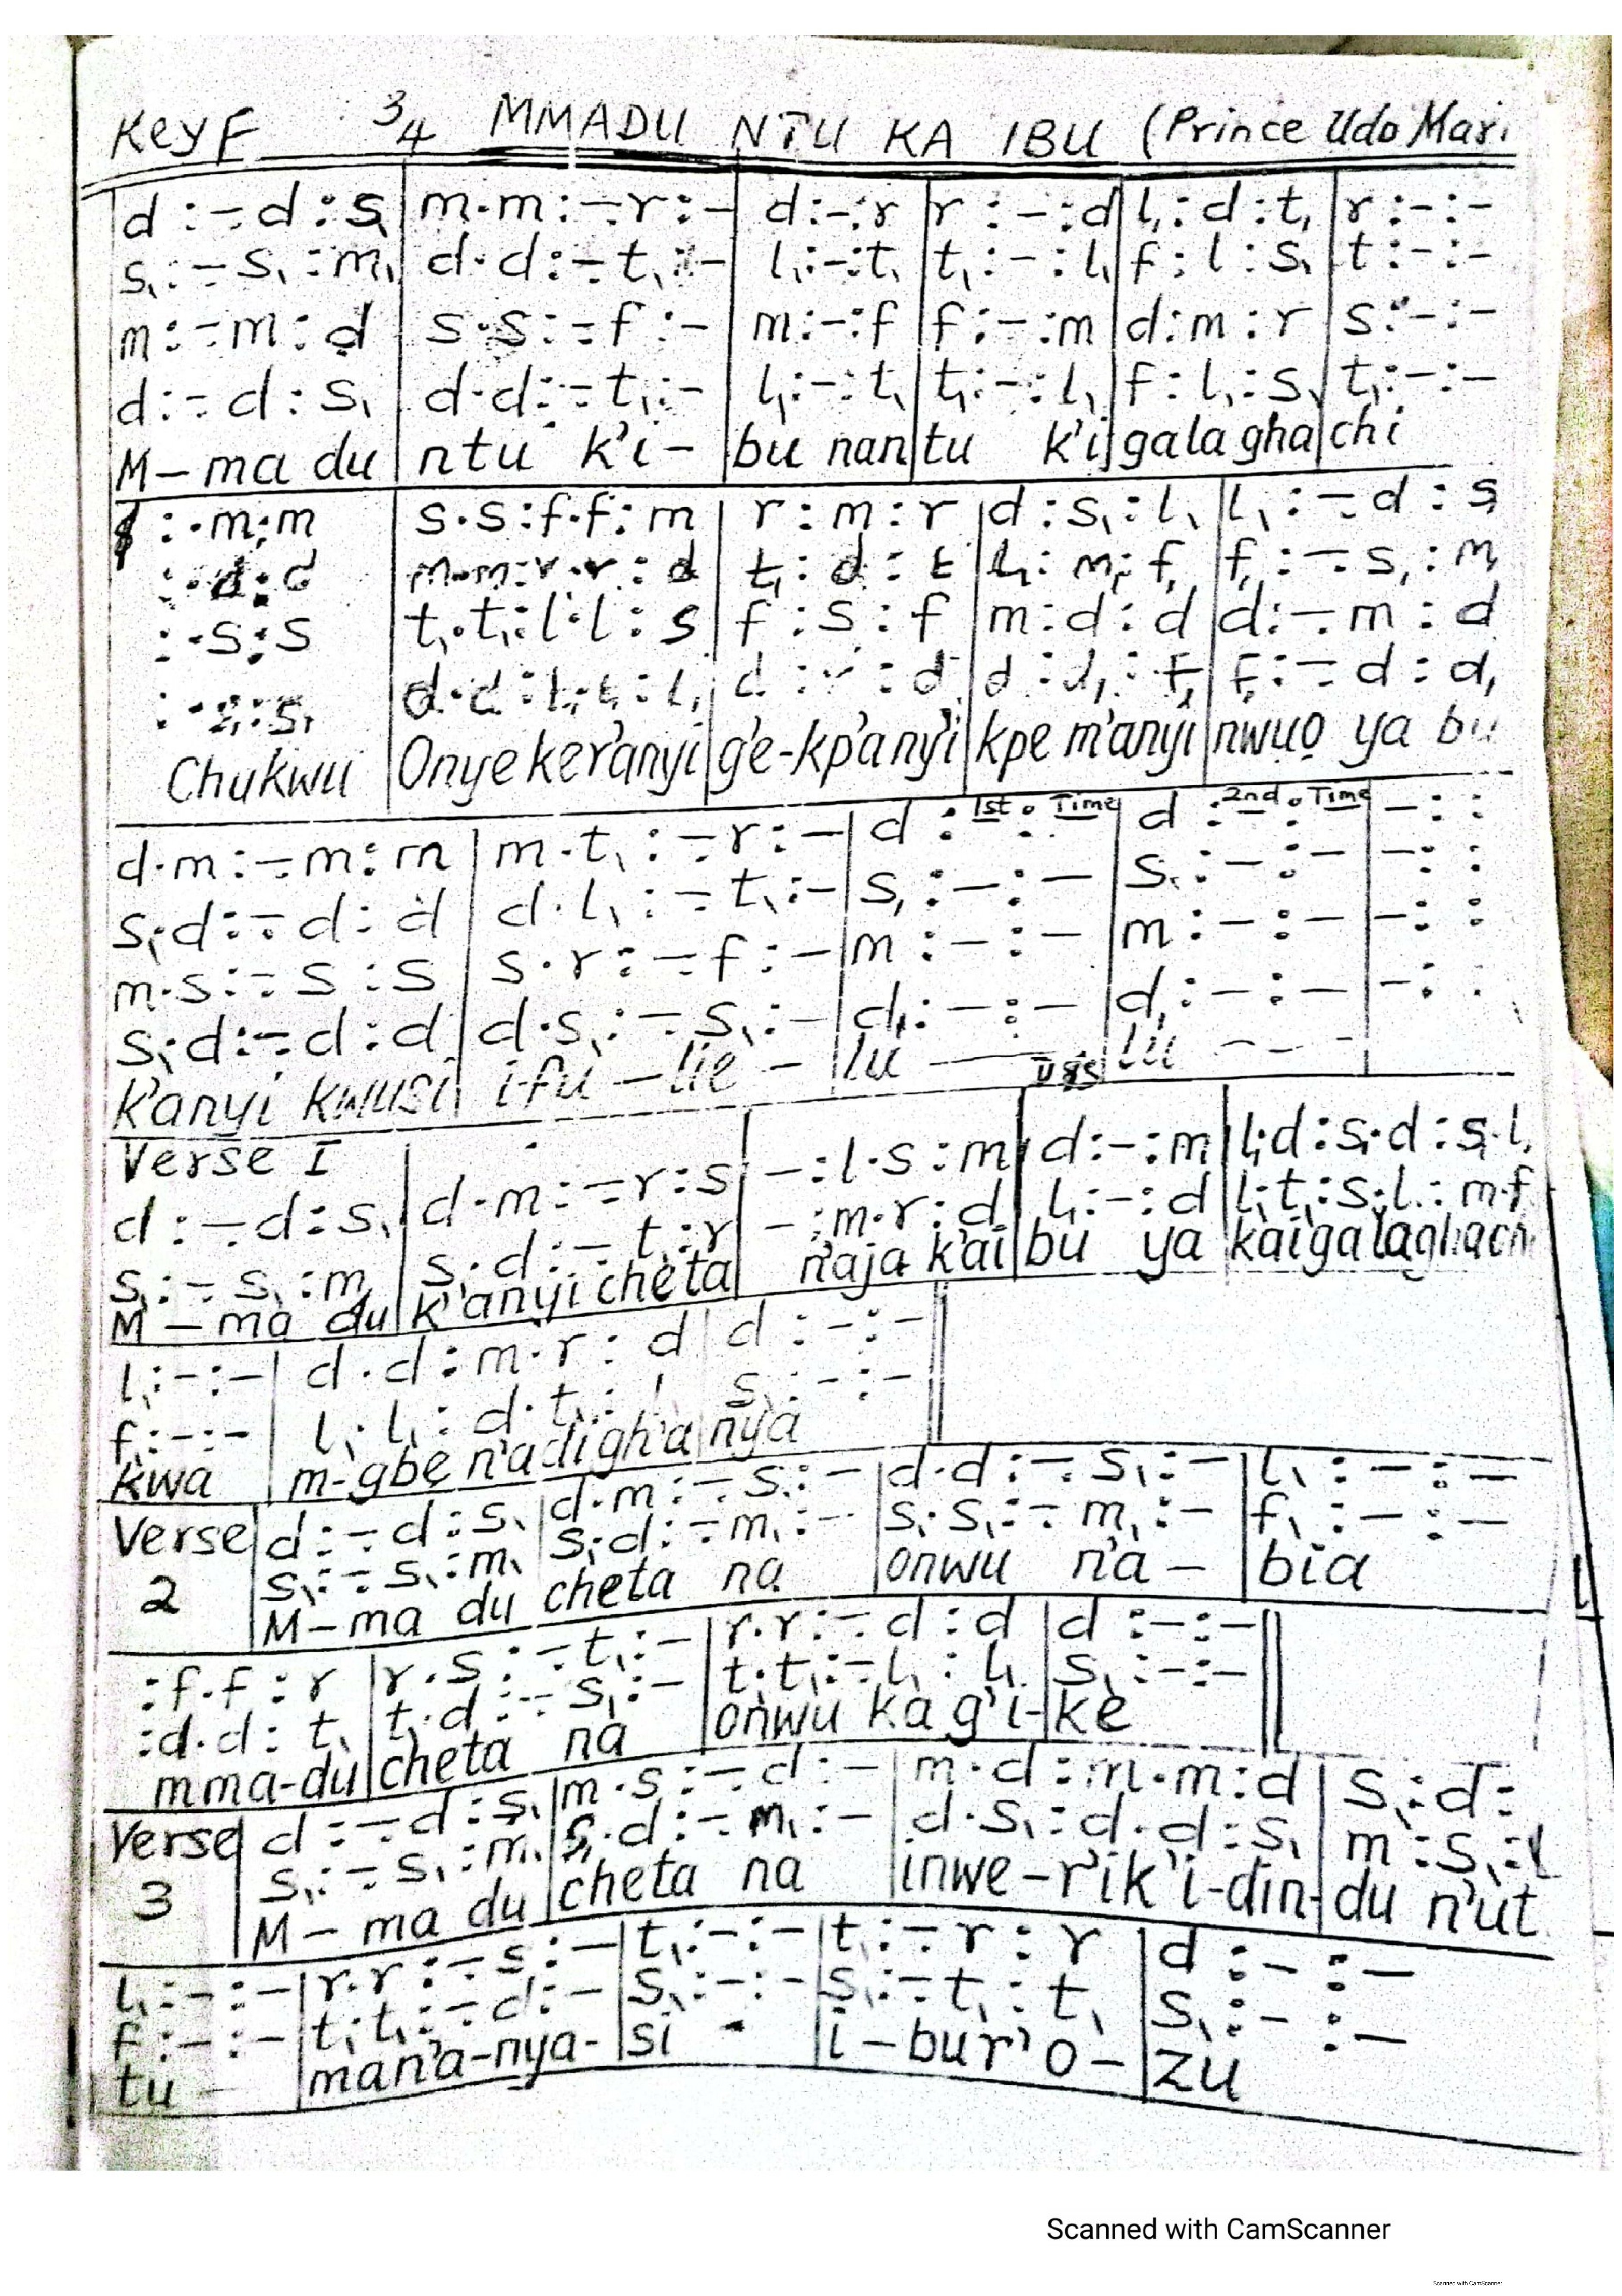 Key F 3/4 MMADU NTU KA IBU (Prince Udo Mari
d :-. d : s, | m.m :-. r :- | d :- : r | r :- : d | l, : d : t, | r :- :-
s, :-. s, : m, | d.d :-. t, :- | l, :- : t, | t, :- : l, | f : l : s, | t :- :-
m :-. m : d | s.s :-. f :- | m :- : f | f :- : m | d : m : r | s :- :-
d :-. d : s, | d.d :-. t, :- | l, :- : t, | t, :- : l, | f : l, : s, | t, :- :-
M – ma du | ntu k'i – | bu nan | tu k'i | gala gha | chi
: .m : m | s.s : f.f : m | r : m : r | d : s, : l, | l, :-. d : s,
: .d : d | m.m : r.r : d | t, : d : t | l, : m, : f, | f, :-. s, : m,
: .s : s | t,.t, : l.l : s | f : s : f | m : d : d | d :-. m : d
: s, | d.d : t,.t, : l, | d : r : d | d : d, : f, | f, :-. d : d,
Chukwu | Onye ker'anyi | g'e-kp'anyi | kpe m'anyi | nwuo ya bu
d.m :-. m : m | m.t, :-. r :- | d :- :- 1st Time | d :- :- 2nd Time | - : :
s,.d :-. d : d | d.l, :-. t, :- | s, :- :- | s, :- :- | - : :
m.s :-. s : s | s.r :-. f :- | m :- :- | m :- :- | - : :
s,.d :-. d : d | d.s, :-. s, :- | d, :- :- | d, :- :- | - : :
k'anyi kwusi | ifu – lie – | lu | lu
Verse I
d :-. d : s, | d.m :-. r : s | - : l.s : m | d :- : m | l,.d : s,.d : s,.l,
s, :-. s, : m, | s,.d :-. t, : r | - : m.r : d | l, :- : d | l,.t, : s,.l, : m.f
M – ma du | k'anyi cheta | n'aja k'ai | bu ya | kaigalaghachi
l, :- :- | d.d : m.r : d | d :- :-
f, :- :- | l,.l, : d.t, : l | s, :- :-
kwa | m-gbe n'adigh'a | nya
Verse 2
d :-. d : s, | d.m :-. s, :- | d.d :-. s, :- | l, :- :-
s, :-. s, : m, | s,.d :-. m, :- | s,.s, :-. m, :- | f, :- :-
M – ma du | cheta na | onwu n'a – | bia
: f.f : r | r.s :-. t, :- | r.r :-. d : d | d :- :-
: d.d : t, | t,.d :-. s, :- | t,.t, :-. l, : l, | s, :- :-
mma-du | cheta na | onwu ka g'i- | ke
Verse 3
d :-. d : s, | m.s :-. d :- | m.d : m.m : d | s, : d :
s, :-. s, : m, | s,.d :-. m, :- | d.s, : d.d : s, | m : s, : l
M – ma du | cheta na | inwe-r'ik'i-din- | du n'ut
l, :- :- | r.r :-. s :- | t, :- :- | t, :-. r : r | d :- :-
f :- :- | t,.t, :-. d :- | s, :- :- | s, :-. t, : t, | s, :- :-
tu | man'a-nya- | si - | i – bur'o – | zu
Scanned with CamScanner
Scanned with CamScanner